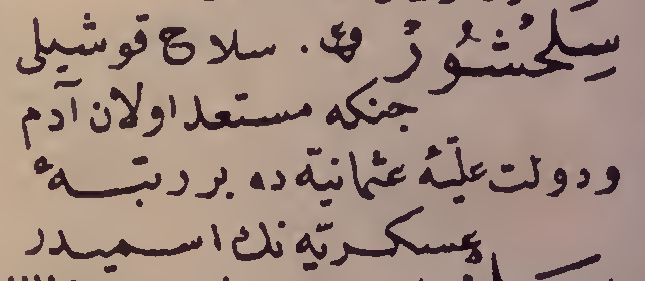 سِلَحْشُورْ فع. سلاح قوشیلی
جنكه مستعد اولان آدم
و دولت علیّهٔ عثمانیّه ده بر رتبــهٔ
عسکریّه نك اســمیدر